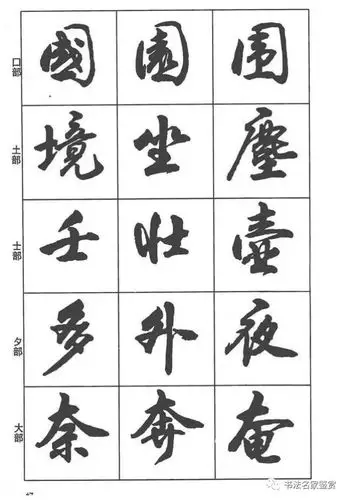 口部 國 園 围
土部 境 坐 塵
士部 壬 壮 壺
夕部 多 外 夜
大部 奈 奔 奄
书法名家鉴赏